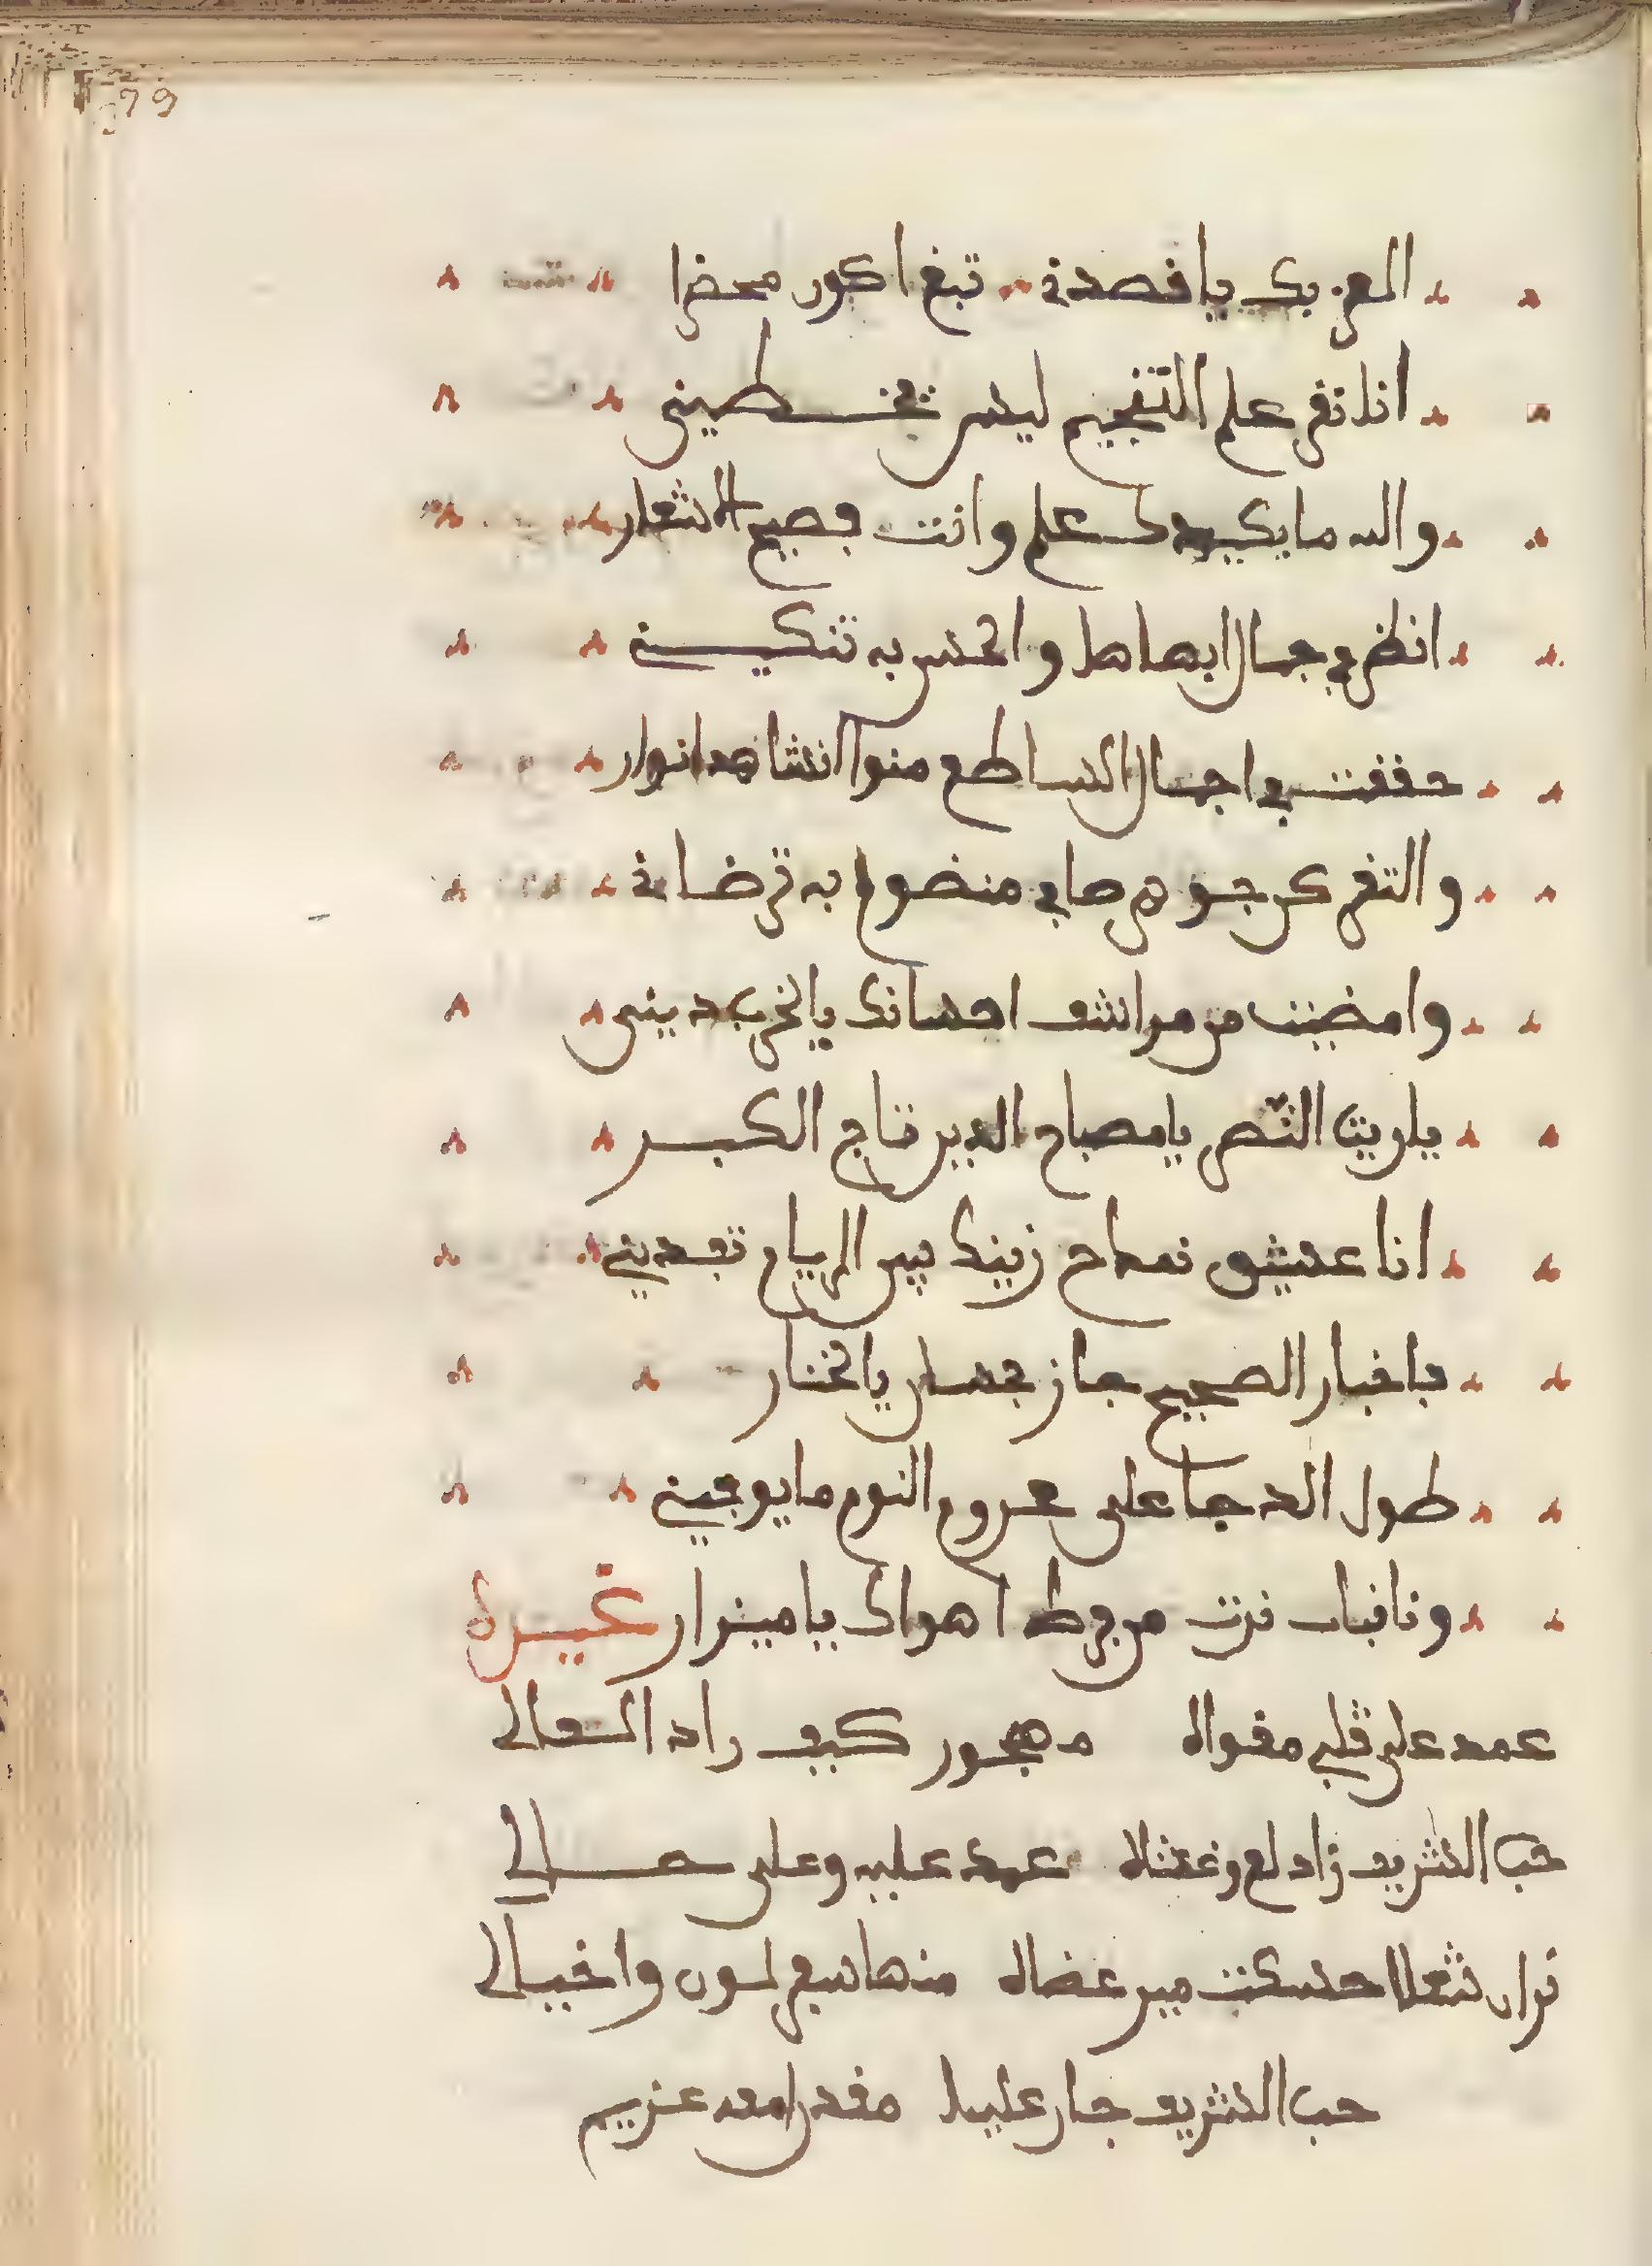 79
المعر بك يا قصدي تبغ اكور محضرا
انا نقر علم التنجيم ليس تخطيني
والله ما يكيدك علم وانت فصيح الشعار
انظر في جمال ابهاها والحسن به تنكيني
حققت في اجمال الساطع منوا انشاهد انوار
والتغر كن جوهر صافي منضوم به ترضاني
وامضيت من مراشف احسانك يا لخرب ديني
يا وريث النصر يا مصباح الدين تاج الكبر
انا عشيق نمداح زينك بين الرياح تفديني
باخبار الصحيح جاز بحسان يا لختار
طول الدجا على محروم النوم ما يوجيني
ونا نبات نزت من فرط اهواك يا ميزار غيره
عمد على قلبي مقواه مهجور كيف راد العالي
حب الشريف زاد لع وغثاه عمد عليه وعلى حالي
نران شعلا حسكت مير عضاه منها سيع لون واخيالي
حب الشريف جار عليا مقدر امعه عزيم